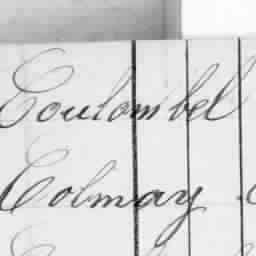 Coulombel
Colmay